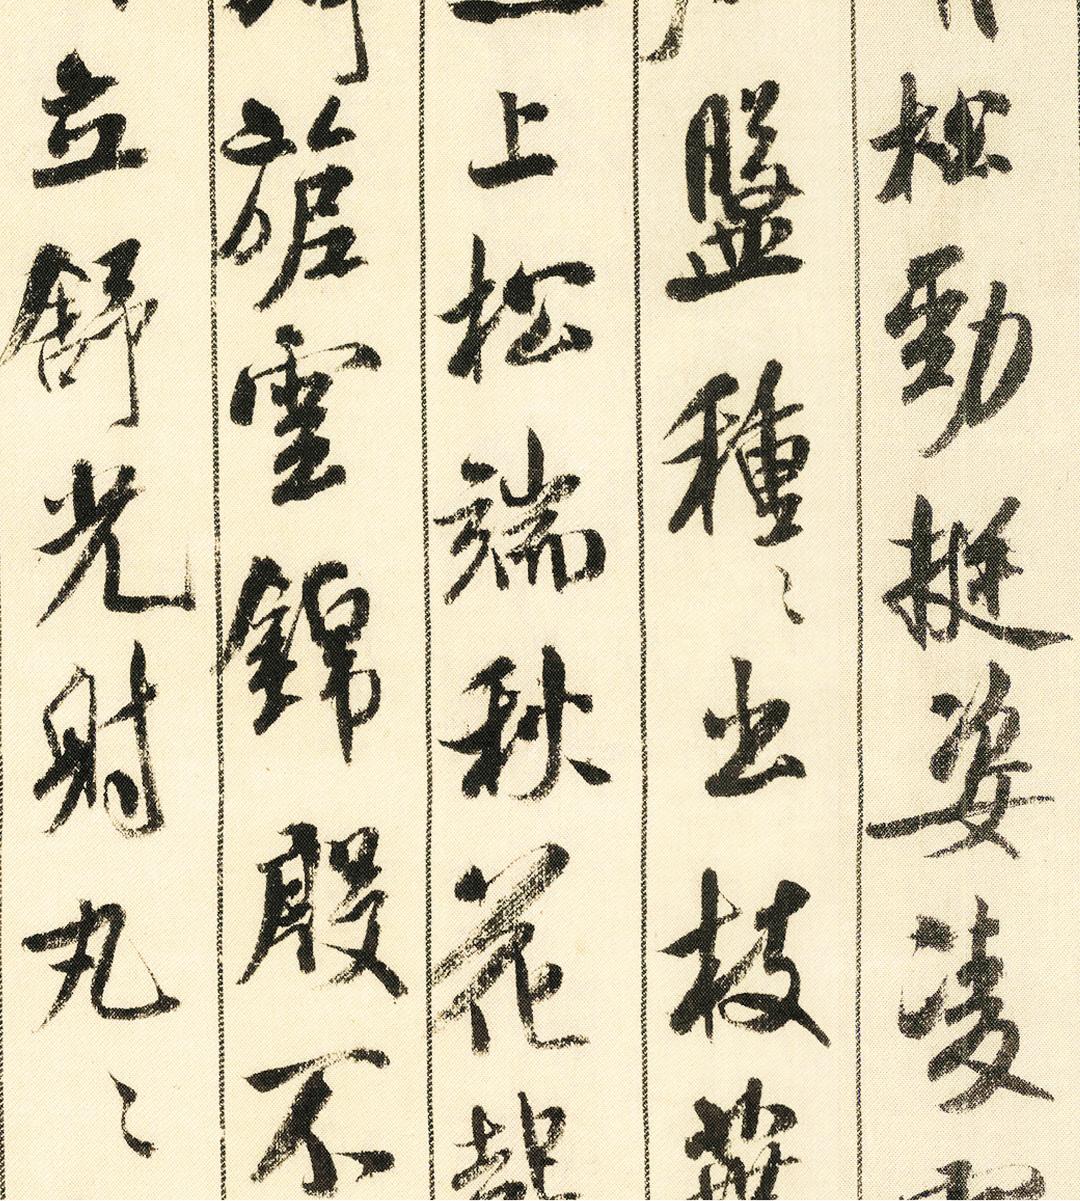 松勁挺姿凌
盤種〻出枝
上松端秋花
旎雲錦殷不
立舒光射丸〻